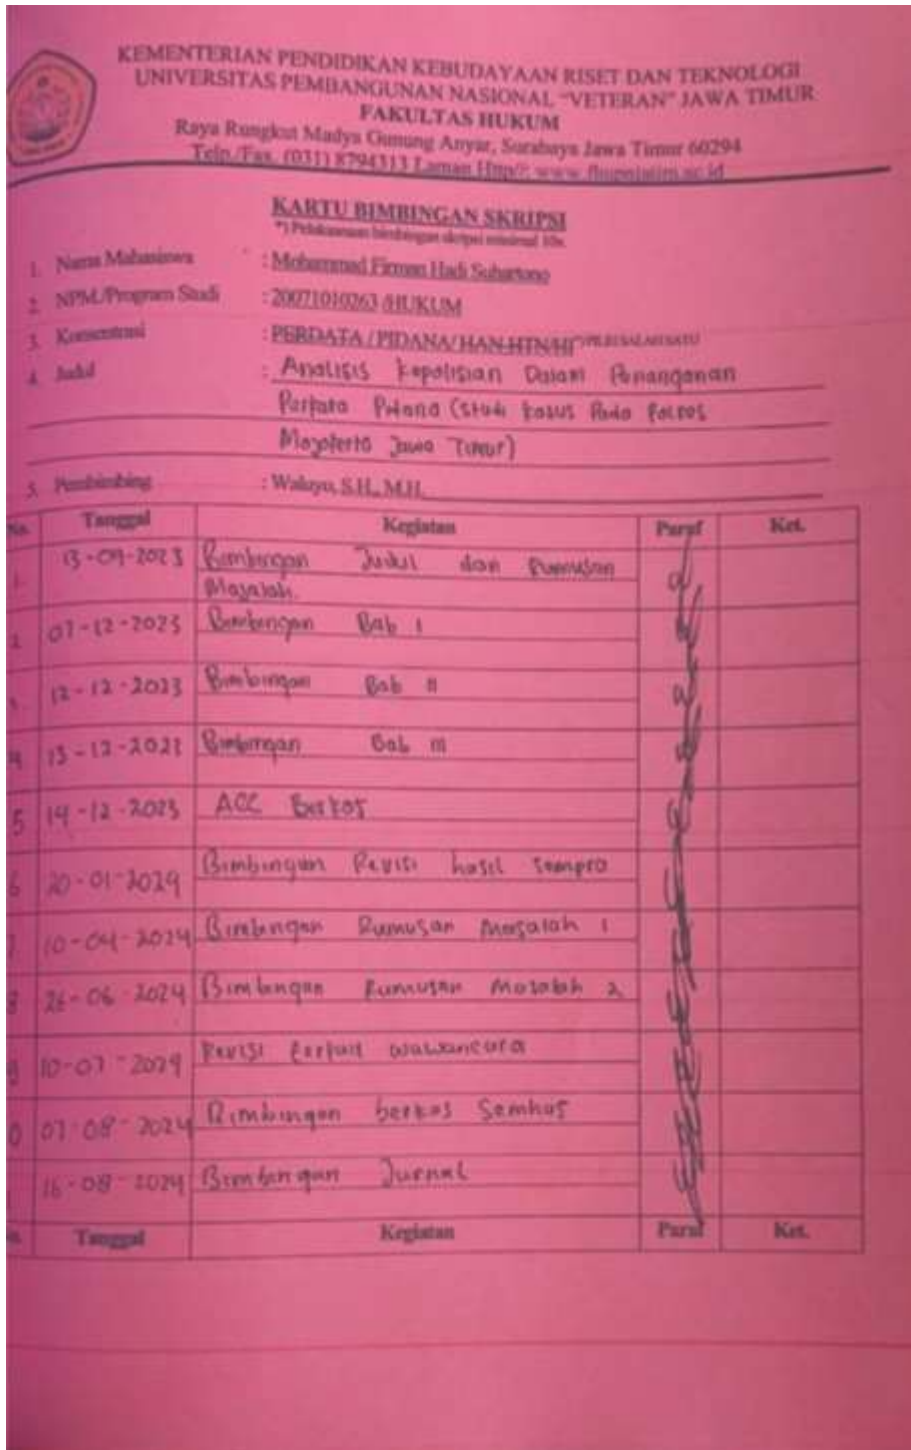 KEMENTERIAN PENDIDIKAN KEBUDAYAAN RISET DAN TEKNOLOGI
UNIVERSITAS PEMBANGUNAN NASIONAL "VETERAN" JAWA TIMUR
FAKULTAS HUKUM
Raya Rungkut Madya Gunung Anyar, Surabaya Jawa Timur 60294
Telp./Fax. (031) 8794313 Laman Http//: www.fhupnjatim.ac.id
KARTU BIMBINGAN SKRIPSI
*) Pelaksanaan bimbingan skripsi minimal 10x
1. Nama Mahasiswa : Mohammad Firman Hadi Suhartono
2. NPM./Program Studi : 20071010263 /HUKUM
3. Konsentrasi : PERDATA / PIDANA/ HAN-HTN/HI
4. Judul : Analisis Kepolisian Dalam Penanganan
Perkara Pidana (Studi Kasus Pada Polres
Mojokerto Jawa Timur)
5. Pembimbing : Waluyo, S.H., M.H.
No. Tanggal Kegiatan Paraf Ket.
13-09-2023 Bimbingan Judul dan Rumusan
Masalah.
2 07-12-2023 Bimbingan Bab I
12-12-2023 Bimbingan Bab II
4 13-12-2023 Bimbingan Bab III
5 14-12-2023 ACC Berkas
6 20-01-2024 Bimbingan Revisi hasil Sempro
10-04-2024 Bimbingan Rumusan Masalah 1
8 26-06-2024 Bimbingan Rumusan Masalah 2
9 10-07-2024 Revisi terkait wawancara
0 07-08-2024 Bimbingan berkas Semhas
16-08-2024 Bimbingan Jurnal
Tanggal Kegiatan Paraf Ket.